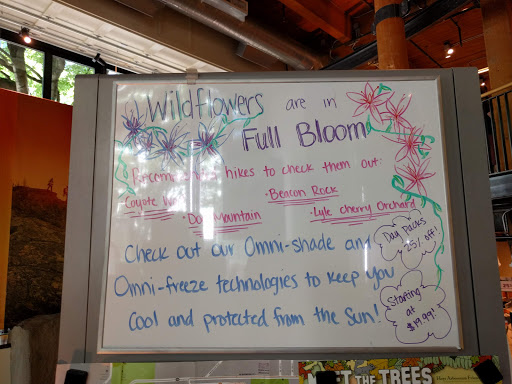 Wildflowers are in
Full Bloom
hikes to check them out:
Coyote
· Beacon Rock
· Dog Mountain
· Lyle Cherry Orchard
Check out our Omni-shade and
Omni-freeze technologies to keep you
cool and protected from the sun!
Day Packs
25% off!
Starting
at
$19.99!
THE TREES